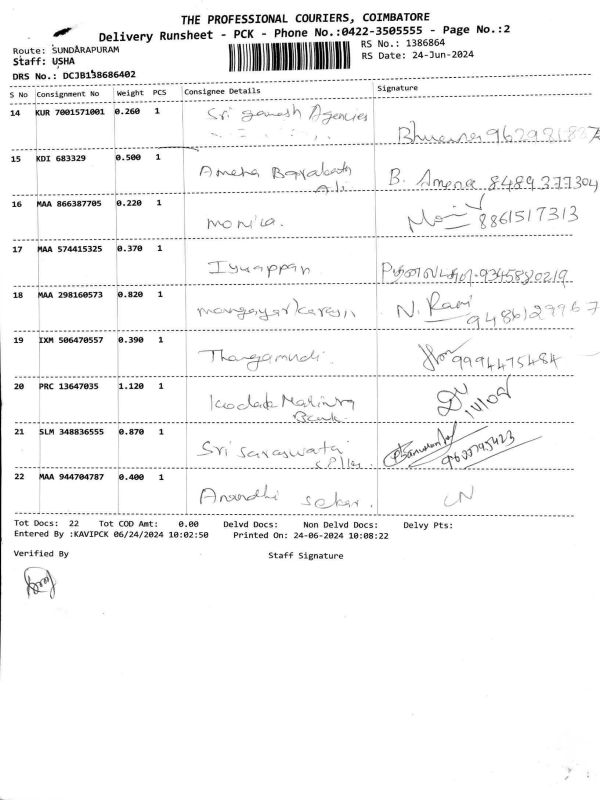 THE PROFESSIONAL COURIERS, COIMBATORE
Delivery Runsheet - PCK - Phone No.:0422-3505555 - Page No.:2
Route: SUNDARAPURAM
RS No.: 1386864
Staff: USHA
RS Date: 24-Jun-2024
DRS No.: DCJB138686402
S No Consignment No Weight PCS Consignee Details Signature
14 KUR 7001571001 0.260 1 Sri ganesh Agencies
15 KDI 683329 0.500 1 Ali B. Amena 8489377304
16 MAA 866387705 0.220 1 monica. 8861517313
17 MAA 574415325 0.370 1 Iyyappan 9345880219
18 MAA 298160573 0.820 1 N. Ravi 9486129967
19 IXM 506470557 0.390 1 9994475484
20 PRC 13647035 1.120 1 Bank
21 SLM 348836555 0.870 1 Sri Saraswati
22 MAA 944704787 0.400 1 Anandhi Sekar.
Tot Docs: 22 Tot COD Amt: 0.00 Delvd Docs: Non Delvd Docs: Delvy Pts:
Entered By :KAVIPCK 06/24/2024 10:02:50 Printed On: 24-06-2024 10:08:22
Verified By Staff Signature